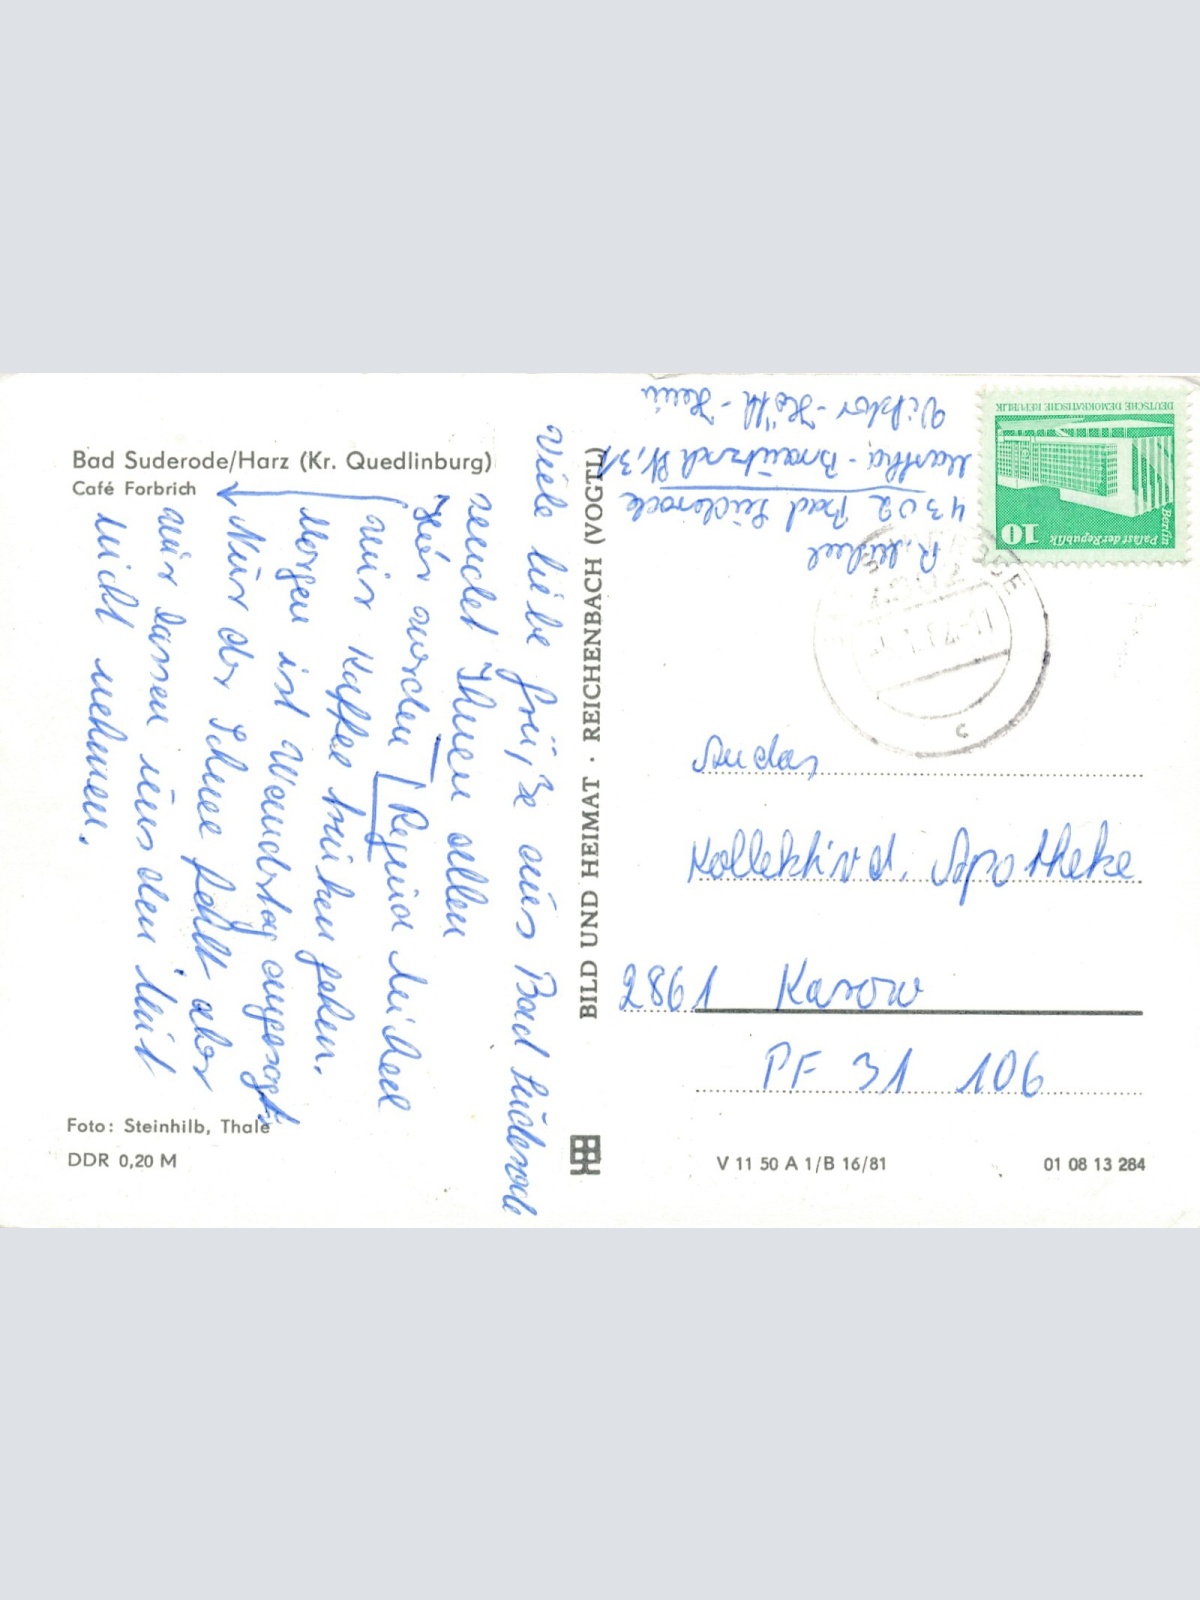 Bad Suderode/Harz (Kr. Quedlinburg)
Café Forbrich
Viele liebe Grüße aus Bad Suderode
sendet Ihnen allen
Regina Michel
Hier werden
wir Kaffee trinken gehen.
Morgen ist Wandertag angesagt.
Nur der Schnee fehlt aber
wir lassen uns den Mut
nicht nehmen.
Foto: Steinhilb, Thale
DDR 0,20 M
BILD UND HEIMAT · REICHENBACH (VOGTL)
R. Michel
4302 Bad Suderode
Martha-Brautzsch Pl, 31
Viktor-
DEUTSCHE DEMOKRATISCHE REPUBLIK
10
Palast der Republik
Berlin
An das
Kollektiv d. Apotheke
2861 Karow
PF 31 106
V 11 50 A 1/B 16/81
01 08 13 284